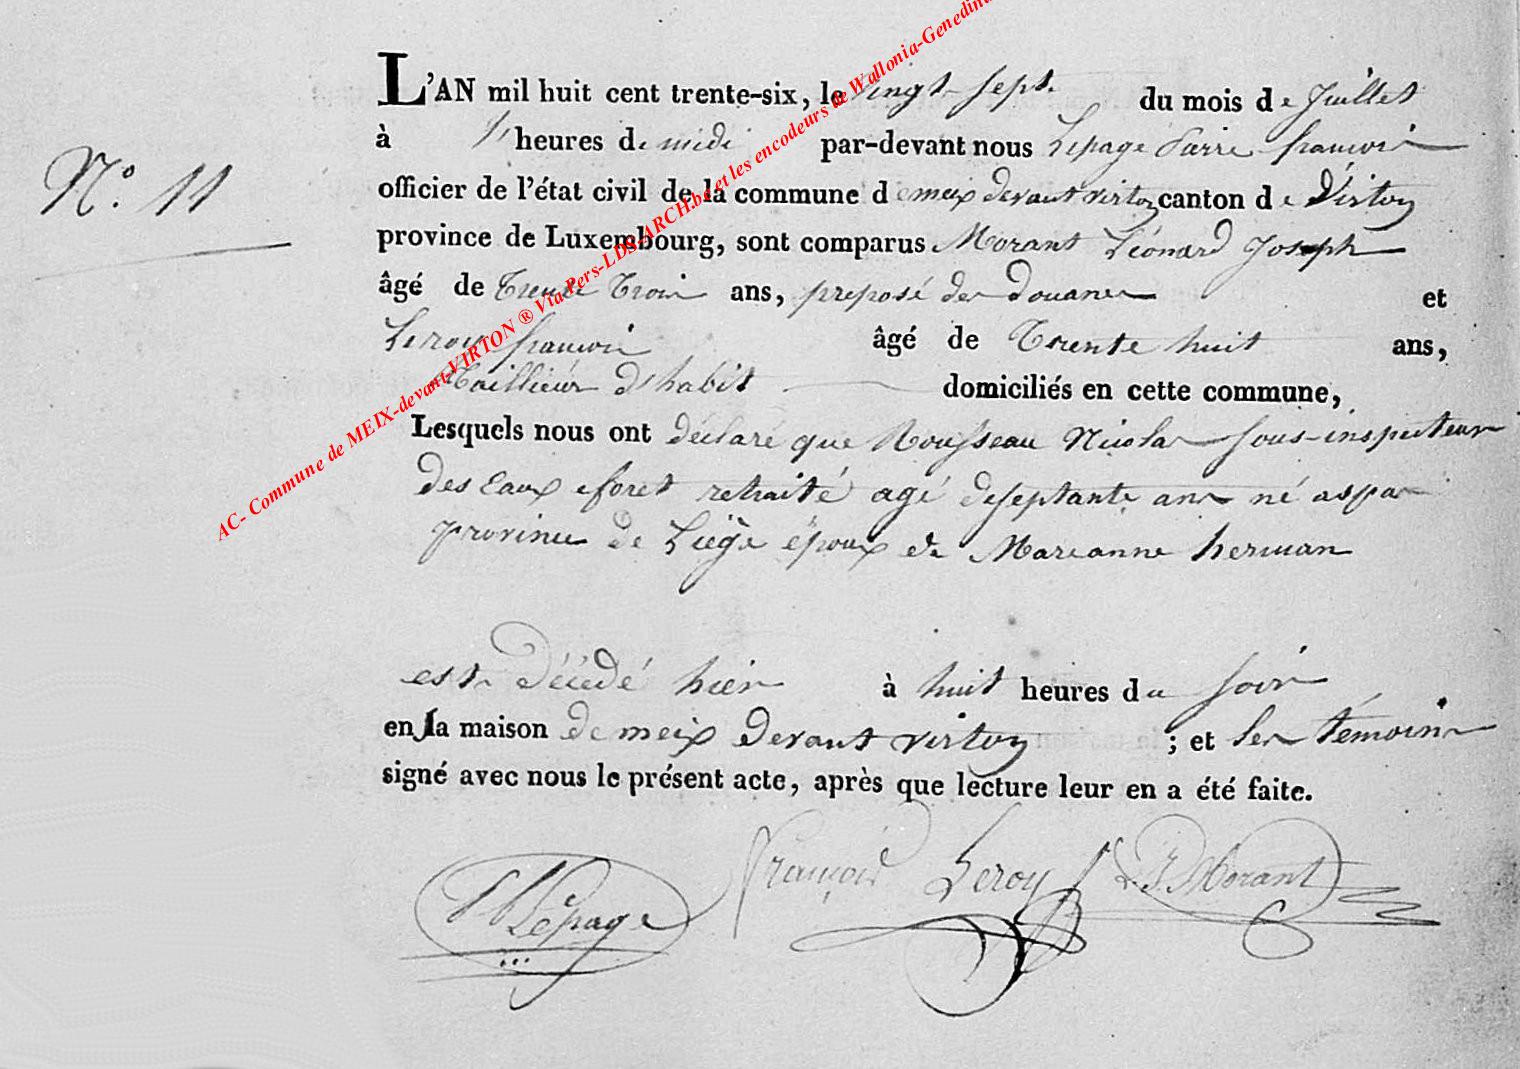 L'AN mil huit cent trente-six, le vingt-sept. du mois de Juillet
à heures de midi par-devant nous Lepage Pierre françois
N.° 11
officier de l'état civil de la commune de meix devant virton canton de Virton
province de Luxembourg, sont comparus Morant Léonard Joseph
âgé de trente trois ans, préposé des douanes et
Leroy françois âgé de trente huit ans,
tailleur d'habit domiciliés en cette commune,
Lesquels nous ont déclaré que Rousseau Nicolas sous-inspecteur
des Eaux e foret retraité agé de septante ans né aspa
province de Liège époux de Marianne herman
est Décédé hier à huit heures du soir
en la maison de meix devant virton ; et les témoins
signé avec nous le présent acte, après que lecture leur en a été faite.
Lepage François Leroy L. J. Morant
AC- Commune de MEIX-devant-VIRTON ® Via Pers-LDS-ARCH.be et les encodeurs de Wallonia-Genedina